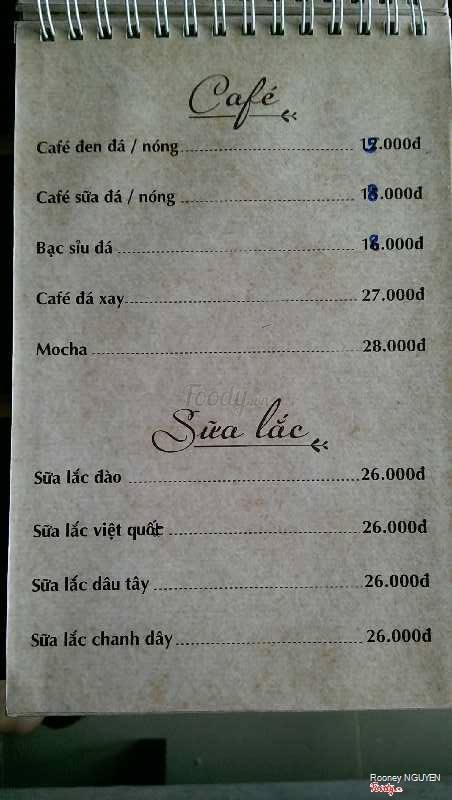 Café
Café đen đá / nóng 15.000đ
Café sữa đá / nóng 18.000đ
Bạc sỉu đá 18.000đ
Café đá xay 27.000đ
Mocha 28.000đ
Foody.vn
Sữa lắc
Sữa lắc đào 26.000đ
Sữa lắc việt quốc 26.000đ
Sữa lắc dâu tây 26.000đ
Sữa lắc chanh dây 26.000đ
Rooney NGUYEN
Foody.vn